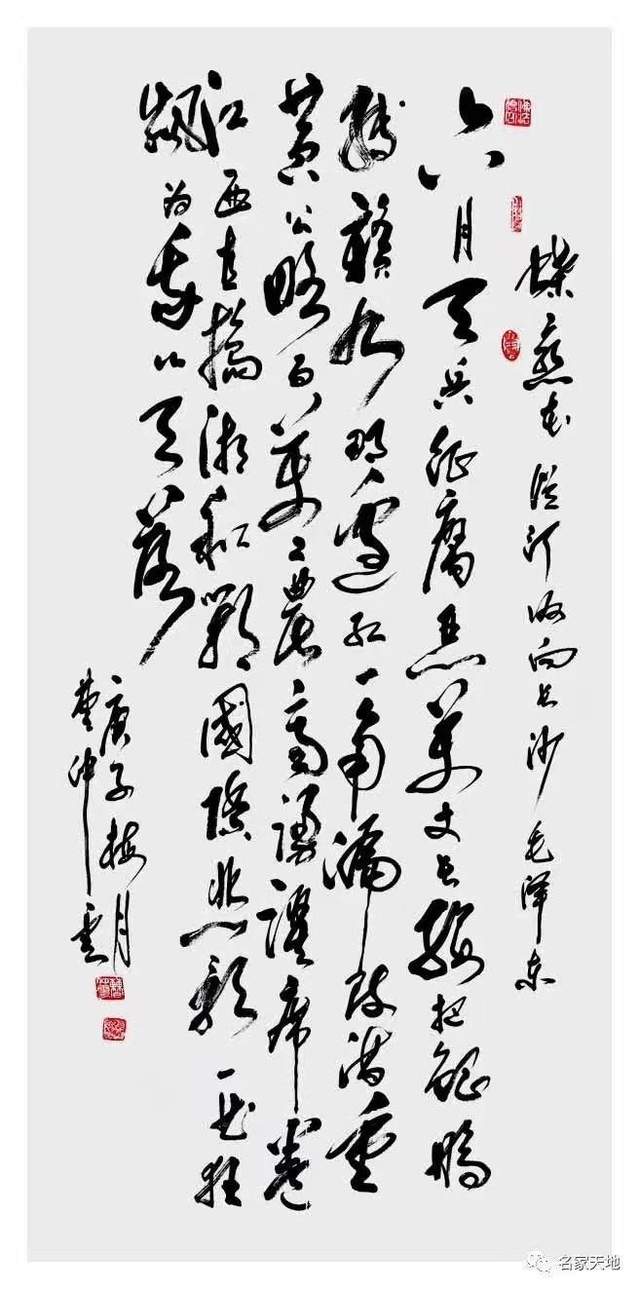 蝶恋花 從汀州向长沙 毛泽东
六月天兵征腐恶萬丈长缨把鲲鹏
缚赣水那边红一角偏师借重
黄公略百萬工農齊踊躍席卷
江西直搗湘和鄂國際悲歌一曲狂
飙为我從天落
庚子梅月
名家天地